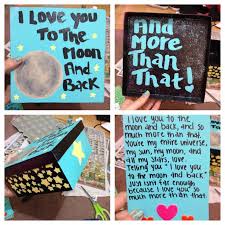 I Love you
To The
Moon
And
Back
And
More
Than
That!
I love you to the
moon and back, and so
much more than that.
You're my entire universe,
my sun, my moon, and
all my stars, love.
Telling you "I love you
to the moon and back,"
Just isn't far enough,
because I love you so
much more than that.